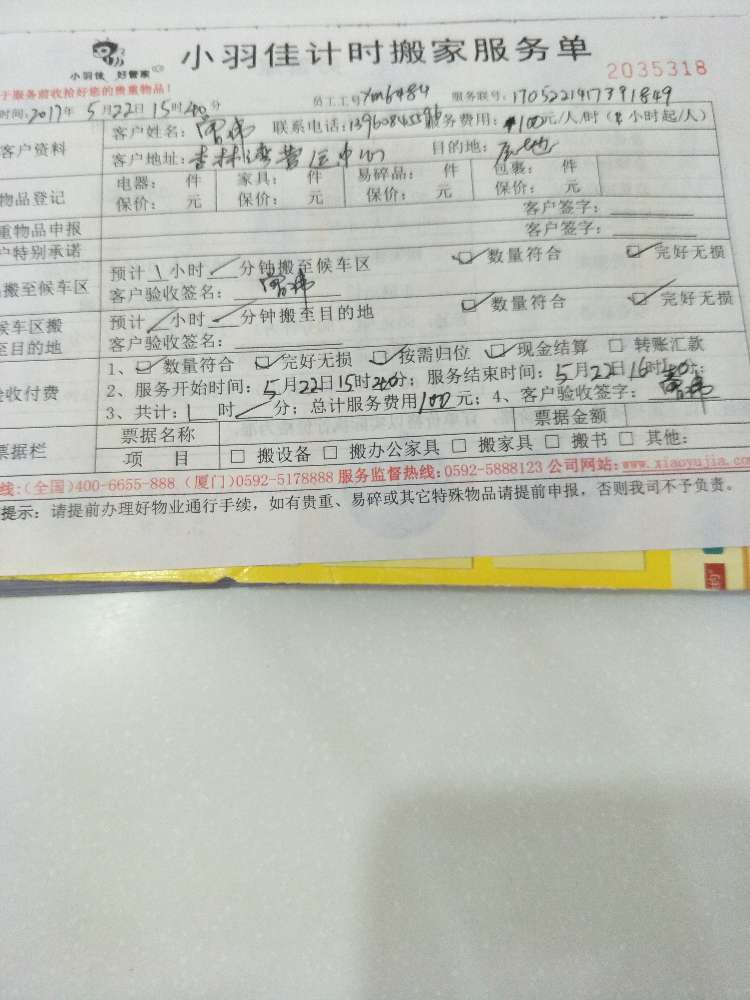 小羽佳 好管家
小羽佳计时搬家服务单
2035318
于服务前收拾好您的贵重物品!
时间:2017年5月22日15时40分 员工工号 xm6484 服务联号:170522147391849
客户资料 客户姓名: 联系电话: 服务费用:100元/人/时( 小时起/人)
客户地址:杏林湾营运中心 目的地:
物品登记 电器: 件 家具: 件 易碎品: 件 包裹: 件
保价: 元 保价: 元 保价: 元 保价: 元
重物品申报 客户签字:
户特别承诺 客户签字:
搬至候车区 预计1小时 分钟搬至候车区 ☑数量符合 ☑完好无损
客户验收签名:
候车区搬至目的地 预计 小时 分钟搬至目的地 ☑数量符合 ☑完好无损
客户验收签名:
验收付费 1、☑数量符合 ☑完好无损 ☑按需归位 ☑现金结算 □转账汇款
2、服务开始时间:5月22日15时40分;服务结束时间:5月22日16时40分;
3、共计:1时 分;总计服务费用100元;4、客户验收签字:
票据栏 票据名称 票据金额
项 目 □搬设备 □搬办公家具 □搬家具 □搬书 □其他:
线:(全国)400-6655-888 (厦门)0592-5178888 服务监督热线:0592-5888123 公司网站:www.xiaoyujia.com
提示:请提前办理好物业通行手续,如有贵重、易碎或其它特殊物品请提前申报,否则我司不予负责。